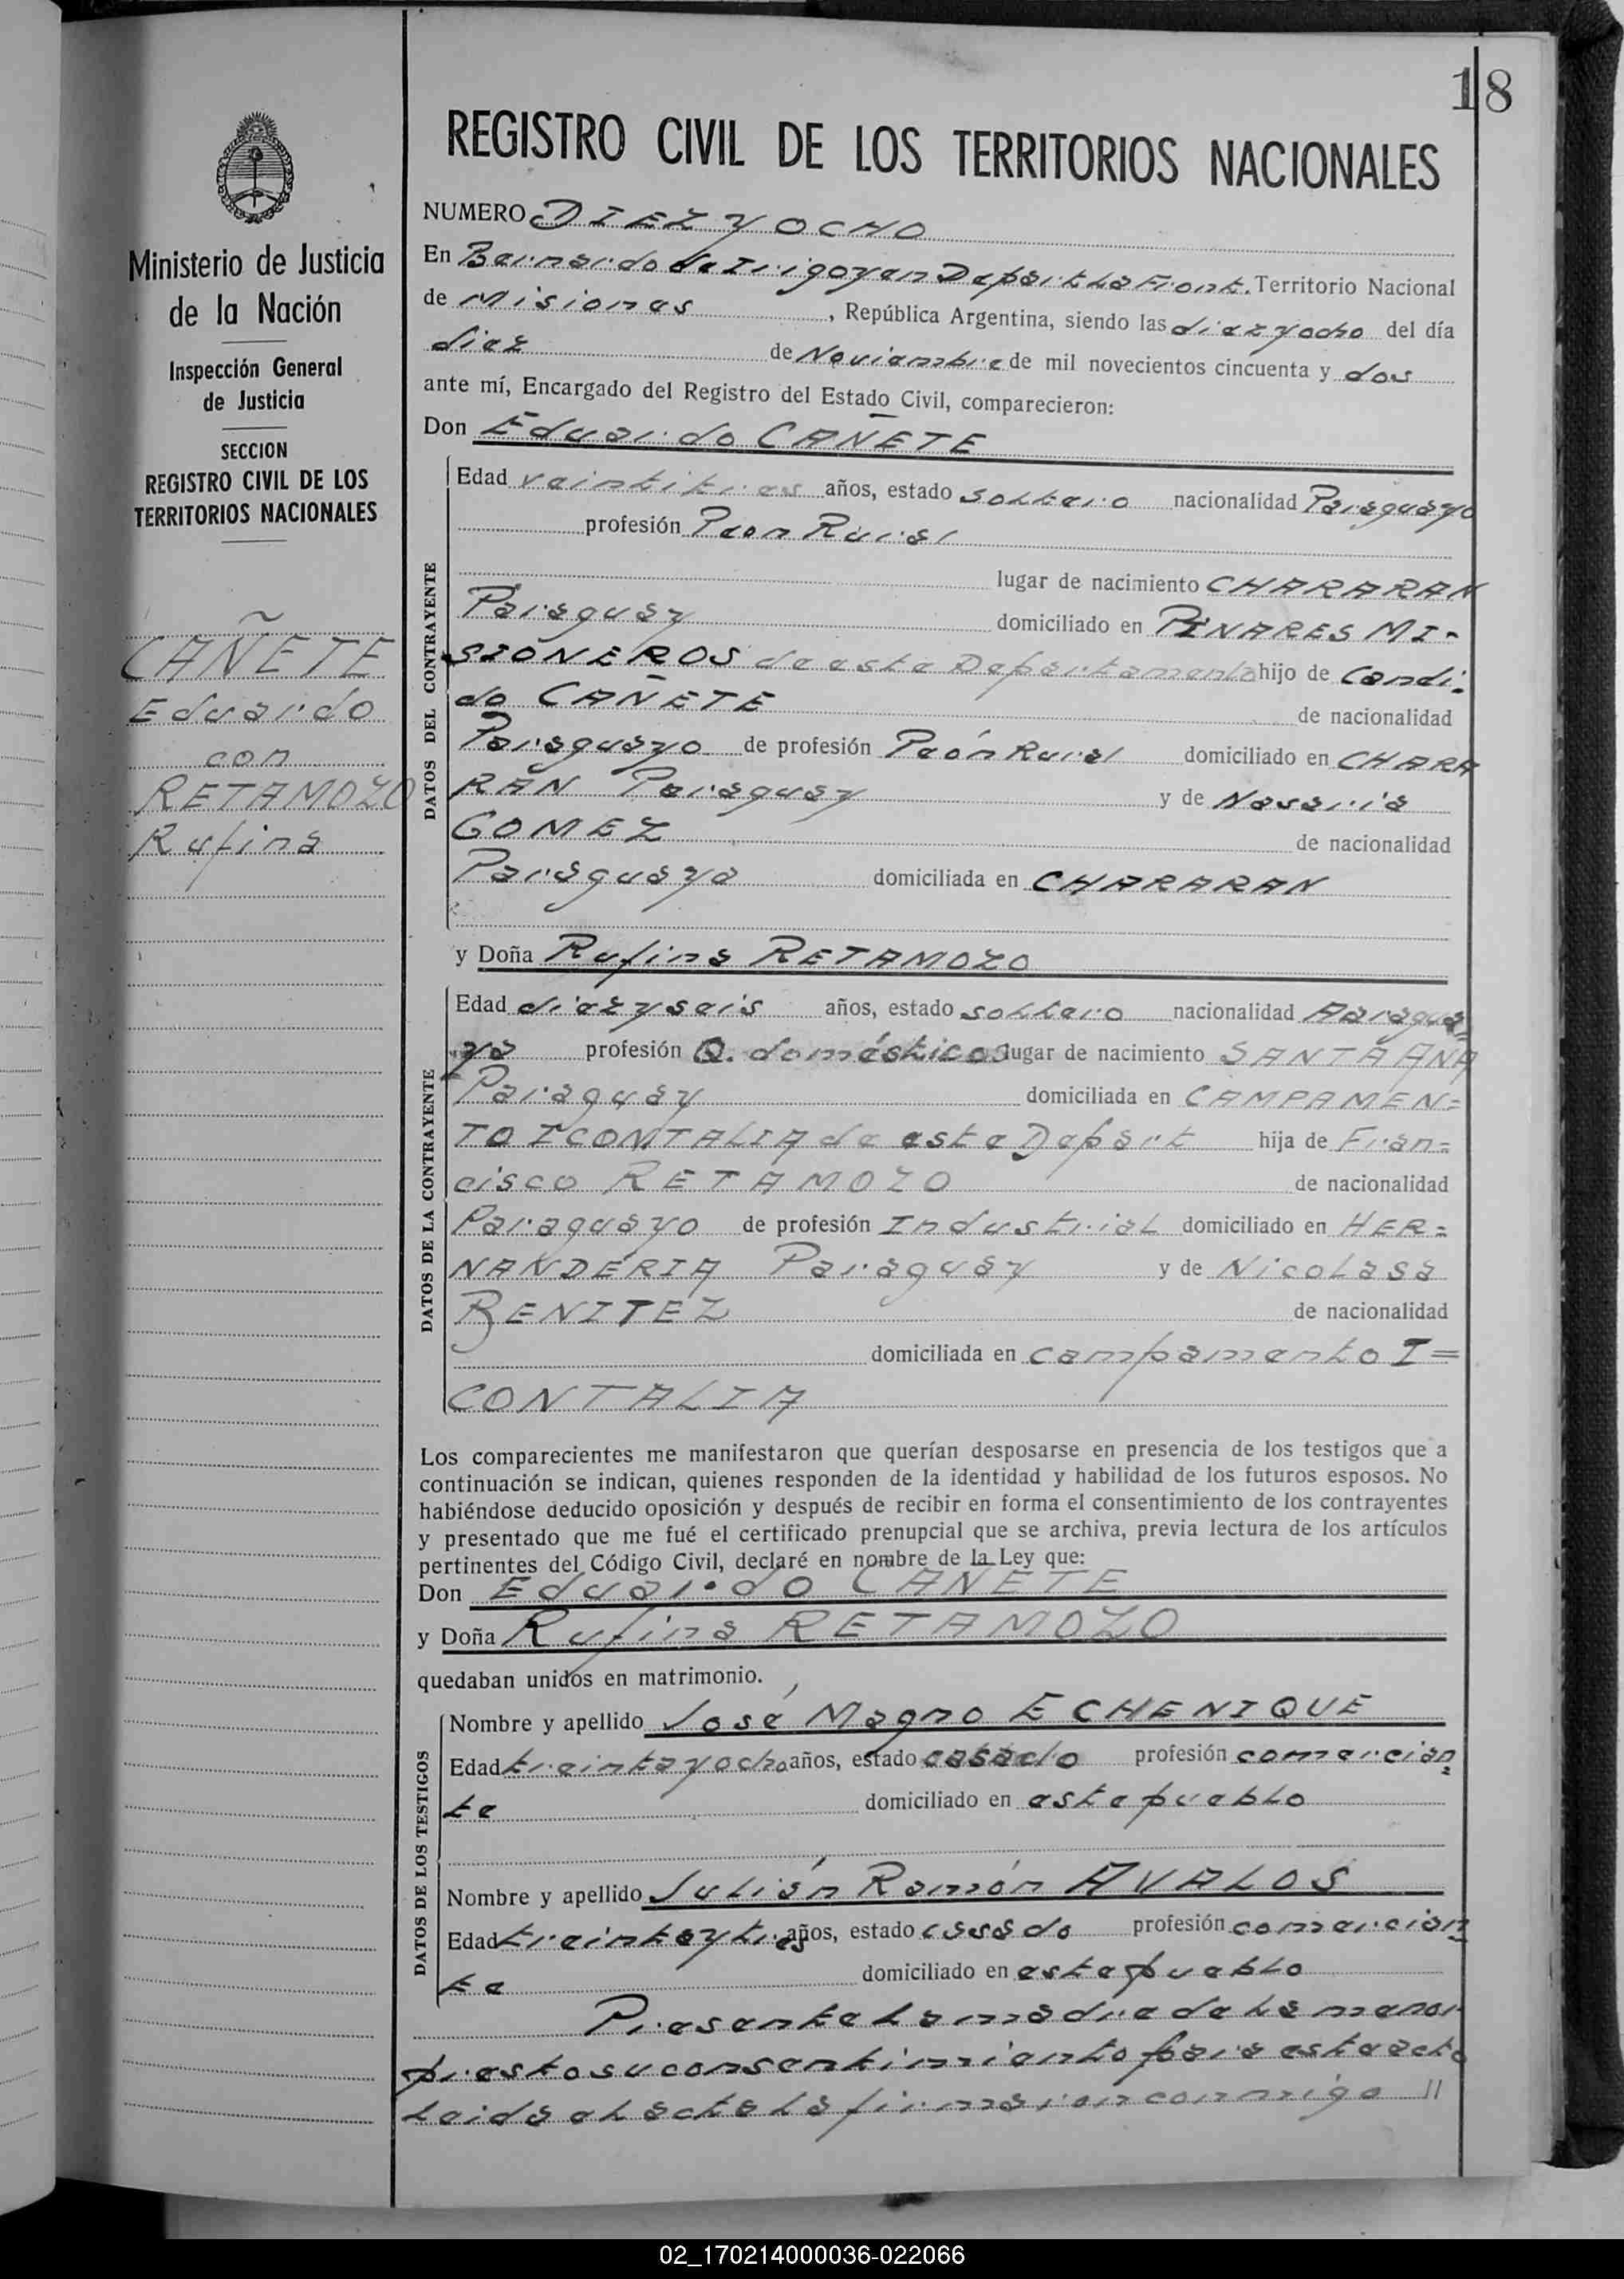 18
REGISTRO CIVIL DE LOS TERRITORIOS NACIONALES
Ministerio de Justicia
de la Nación
Inspección General
de Justicia
SECCION
REGISTRO CIVIL DE LOS
TERRITORIOS NACIONALES
CAÑETE
Eduardo
con
RETAMOZO
Rufina
NUMERO DIEZ y OCHO
En Bernardo de Irigoyen Depart La Front. Territorio Nacional
de Misiones, República Argentina, siendo las diez y ocho del día
diez de Noviembre de mil novecientos cincuenta y dos
ante mí, Encargado del Registro del Estado Civil, comparecieron:
Don Eduardo CAÑETE
DATOS DEL CONTRAYENTE
Edad veintitres años, estado soltero nacionalidad Paraguayo
profesión Peon Rural
lugar de nacimiento CHARARAN
Paraguay domiciliado en PINARES MI-
SIONEROS de este Departamento hijo de Candi-
do CAÑETE de nacionalidad
Paraguayo de profesión Peón Rural domiciliado en CHARA
RAN Paraguay y de Nasaria
GOMEZ de nacionalidad
Paraguaya domiciliada en CHARARAN
y Doña Rufina RETAMOZO
DATOS DE LA CONTRAYENTE
Edad diez y seis años, estado soltero nacionalidad Paragua=
ya profesión Q. domésticos lugar de nacimiento SANTA ANA
Paraguay domiciliada en CAMPAMEN=
TO ICONTALIA de este Depart hija de Fran=
cisco RETAMOZO de nacionalidad
Paraguayo de profesión Industrial domiciliado en HER=
NANDERIA Paraguay y de Nicolasa
BENITEZ de nacionalidad
domiciliada en campamento I=
CONTALIA
Los comparecientes me manifestaron que querían desposarse en presencia de los testigos que a
continuación se indican, quienes responden de la identidad y habilidad de los futuros esposos. No
habiéndose deducido oposición y después de recibir en forma el consentimiento de los contrayentes
y presentado que me fué el certificado prenupcial que se archiva, previa lectura de los artículos
pertinentes del Código Civil, declaré en nombre de la Ley que:
Don Eduardo CAÑETE
y Doña Rufina RETAMOZO
quedaban unidos en matrimonio.
DATOS DE LOS TESTIGOS
Nombre y apellido José Magno ECHENIQUE
Edad treinta y ocho años, estado casado profesión comercian=
te domiciliado en este pueblo
Nombre y apellido Julián Ramón AVALOS
Edad treinta y tres años, estado casado profesión comercian
te domiciliado en este pueblo
Presente la madre de la menor
presto su consentimiento para este acto
Leida el acta la firmaron conmigo //
02_170214000036-022066